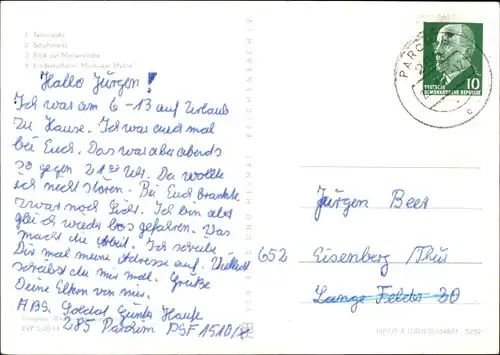 1 Teilansicht
2 Schuhmarkt
3 Blick zur Marienkirche
4
Hallo Jürgen!
Ich war am 6-13 auf Urlaub
zu Hause. Ich war auch mal
bei Euch. Das war aber abends
so gegen 21 Uhr. Da wollte
ich nicht stören. Bei Euch brannte
zwar noch Licht. Ich bin aber
gleich weiter gefahren. Was
macht die Arbeit. Ich schreibe
Dir mal meine Adresse auf. Vielleicht
schreibst du mir mal. Grüße
Deine Eltern von mir.
ABS. Soldat Günter
285 Parchim PSF 1510/
BILD UND HEIMAT REICHENBACH I. V.
PARCHIM
c
10
DEUTSCHE
DEMOKRATISCHE REPUBLIK
Jürgen Beer
652 Eisenberg/Thür
Lange Felder 30
5259